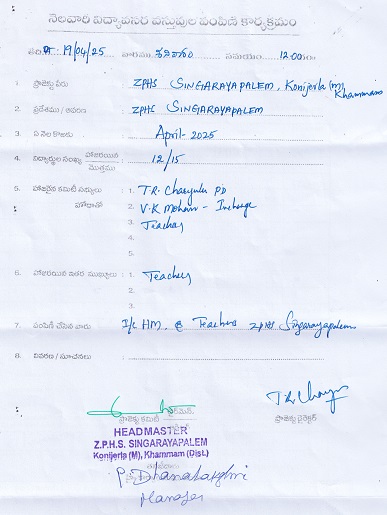 నెలవారీ విద్యావసర వస్తువుల పంపిణీ కార్యక్రమం
తేది : 19/04/25 వారము శనివారం సమయం 12:00
1. ప్రాజెక్టు పేరు : ZPHS SINGARAYAPALEM, Konijerla (M) Khammam
2. ప్రదేశము / ఆవరణ : ZPHS SINGARAYAPALEM
3. ఏ నెల కొరకు : April - 2025
4. విద్యార్థుల సంఖ్య హాజరయిన / మొత్తము : 12/15
5. హాజరైన కమిటీ సభ్యులు : 1. T.R. Charyulu PD
హోదాతో 2. V.K Mohan - Incharge
3. Teacher
4.
5.
6. హాజరయిన ఇతర ముఖ్యులు : 1. Teachers
2.
3.
7. పంపిణీ చేసిన వారు : I/c HM, & Teachers ZPHS Singarayapalem
8. వివరణ / సూచనలు :
T.R. Charyu
ప్రాజెక్టు కమిటీ చైర్మన్
ప్రాజెక్ట్ డైరెక్టర్
HEADMASTER
Z.P.H.S. SINGARAYAPALEM
Konijerla (M), Khammam (Dist.)
P. Dhanalakshmi
Manager